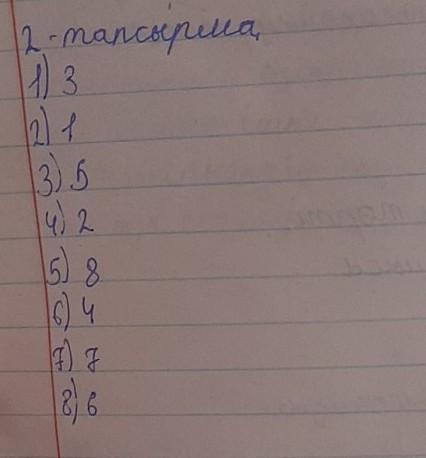 2-тапсырма.
1) 3
2) 1
3) 5
4) 2
5) 8
6) 4
7) 7
8) 6